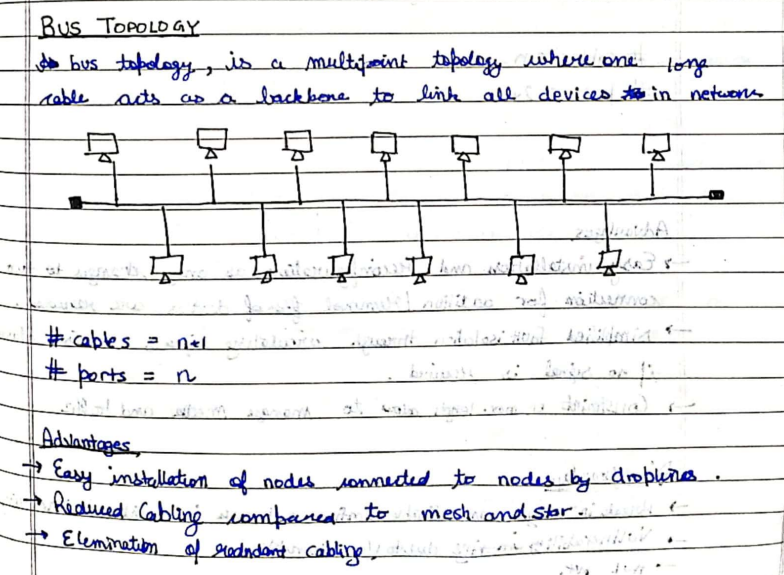 BUS TOPOLOGY
bus topology, is a multipoint topology where one long
cable acts as a backbone to link all devices in network
# cables = n+1
# ports = n
Advantages,
→ Easy installation of nodes connected to nodes by droplines.
→ Reduced Cabling compared to mesh and star.
→ Elemination of redndant cabling.